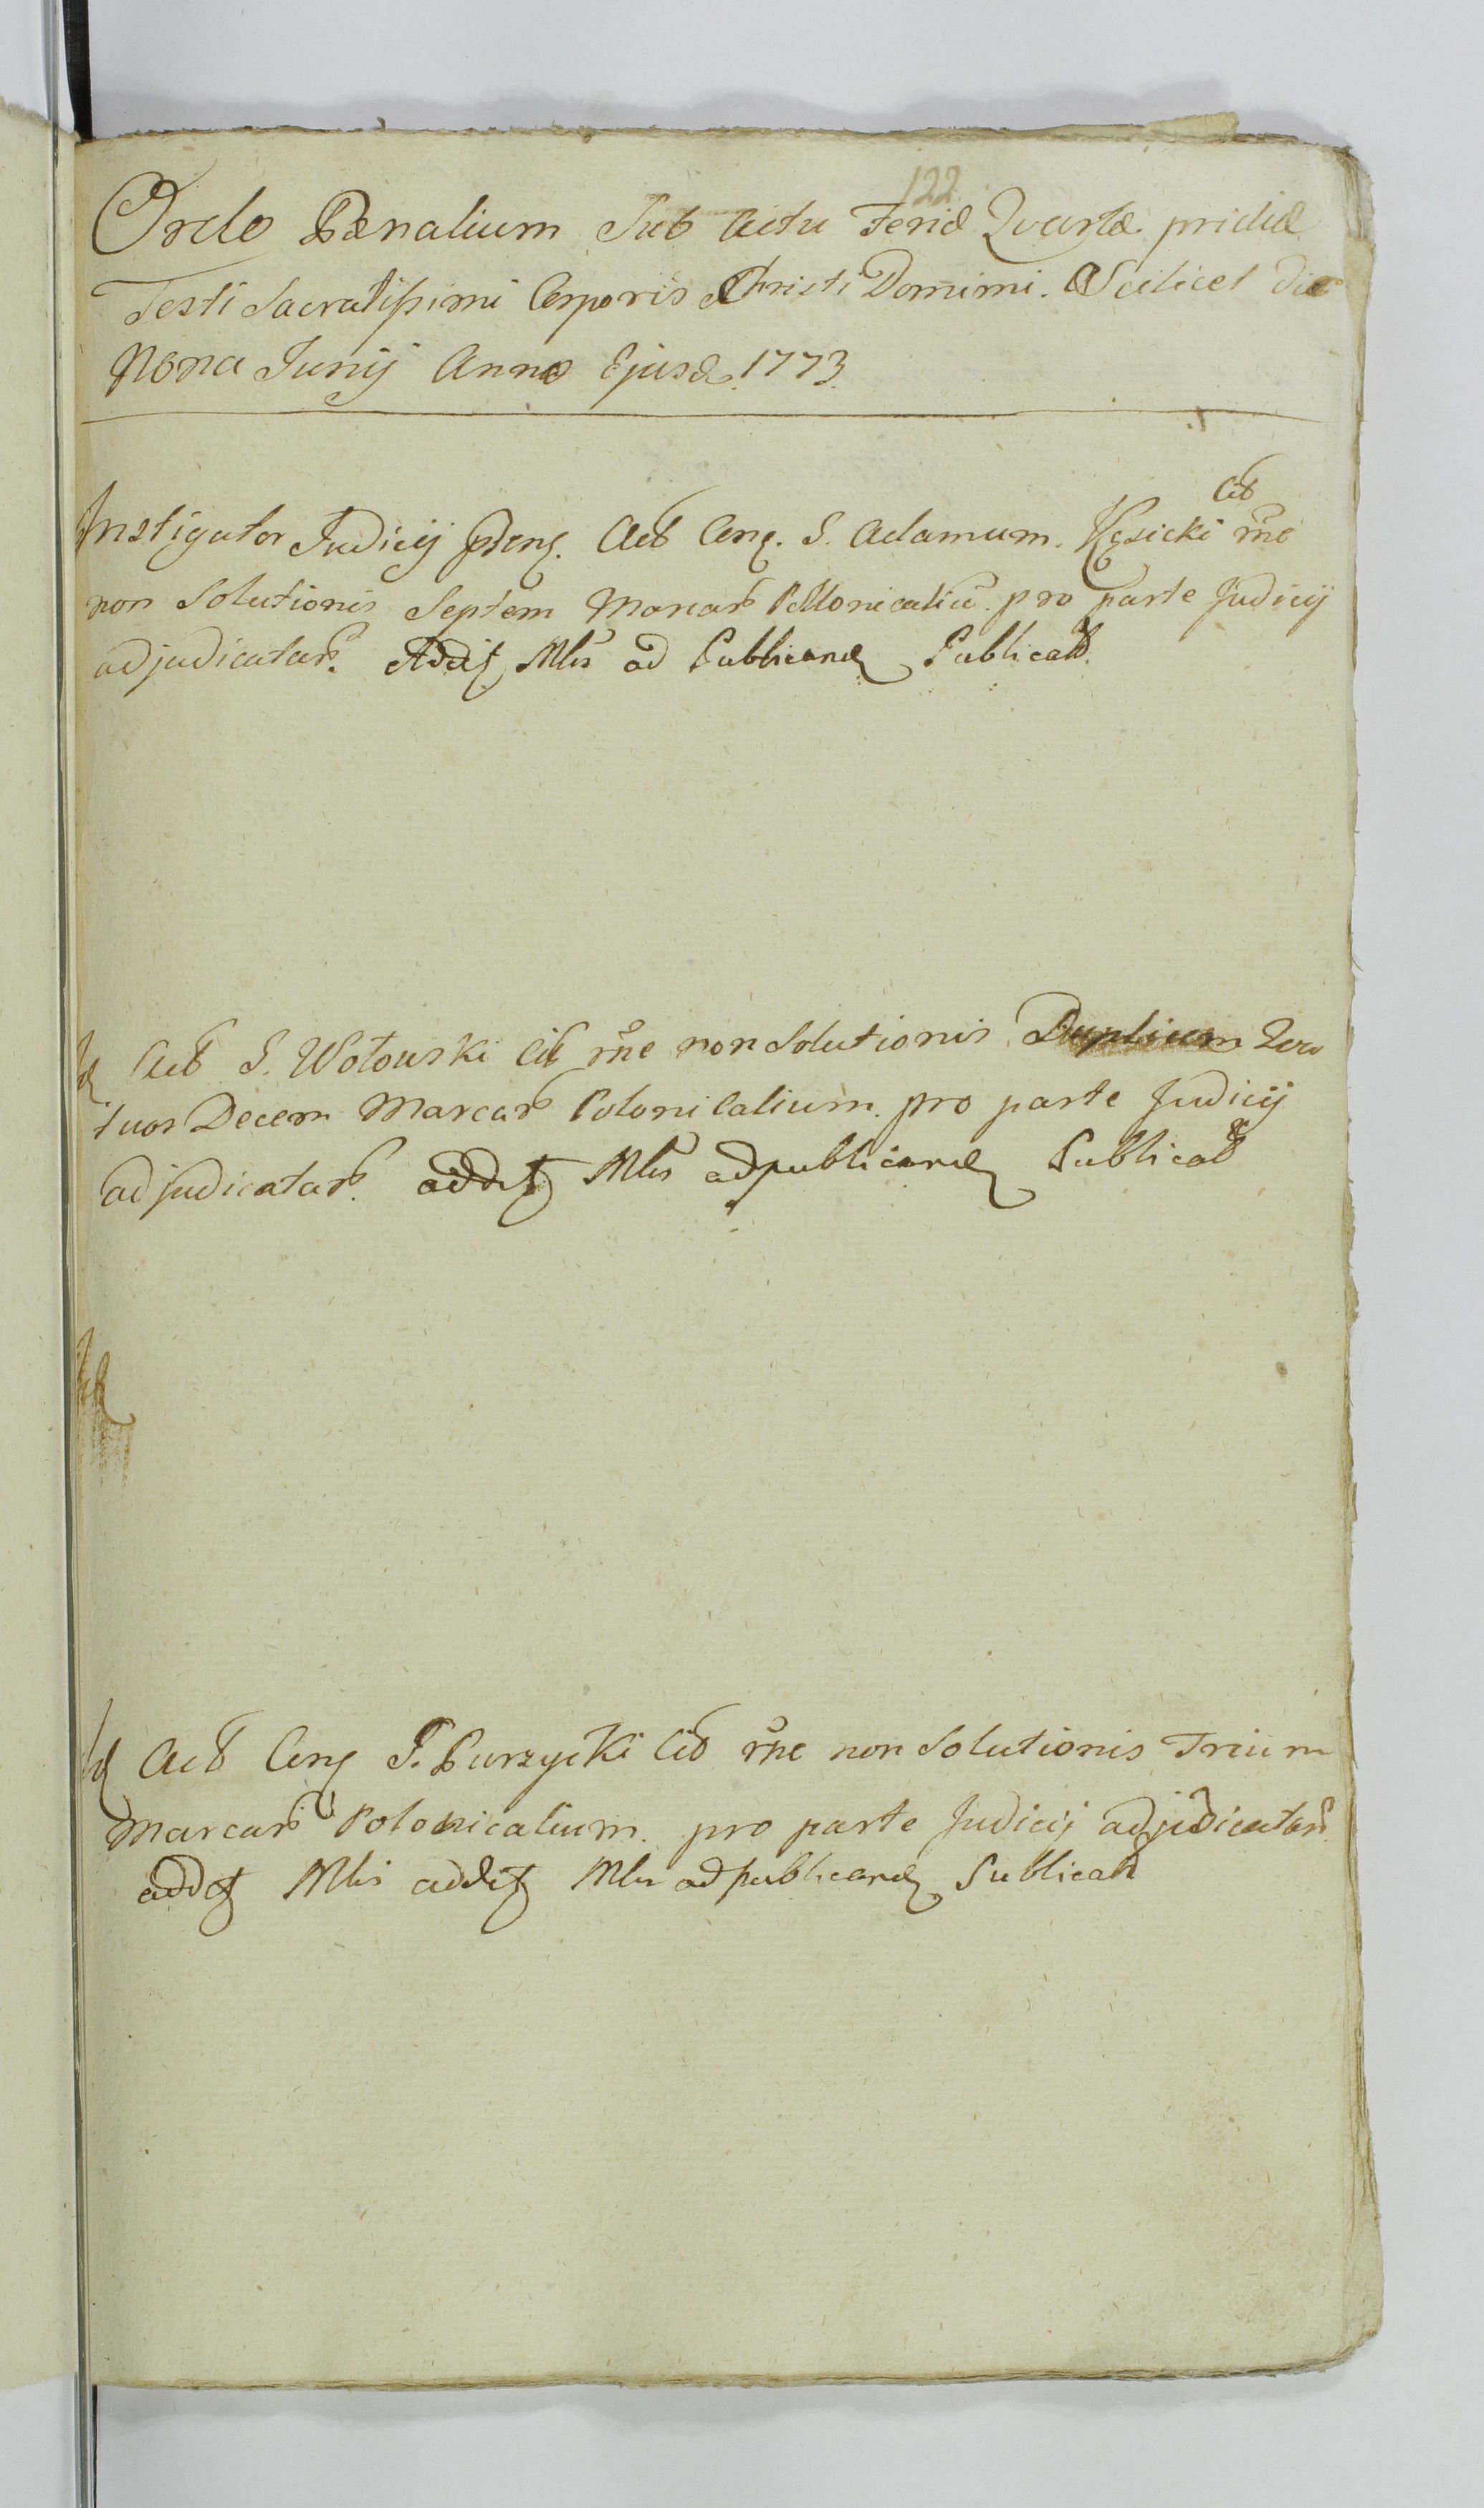 122
Ordo Pænalium Sub Actu Feriæ Qvartæ pridie
Festi Sacratissimi Corporis Christi Domini. Scilicet Die
Nona Junij Anno Ejusd. 1773.
Instigator Judicij Act Contra G. Adamum. Kęsicki Cit rne
non Solutionis Septem Marcar Pollonicaliu. pro parte Judicij
adjudicatar. Addit Mlis ad Publicand Publicatt.
Id Act G. Wołowski Cit rne non Solutionis Duplicem Qva
tuor Decem Marcar Polonicalium. pro parte Judicij
adjudicatar. addit Mlis ad publicand Publicatt
Id
Id Act G. Burzycki Cit rne non Solutionis Trium
Marcar Polonicalium. pro parte Judicij adjudicatar
addit Mlis addit Mlis ad publicand Publicatt